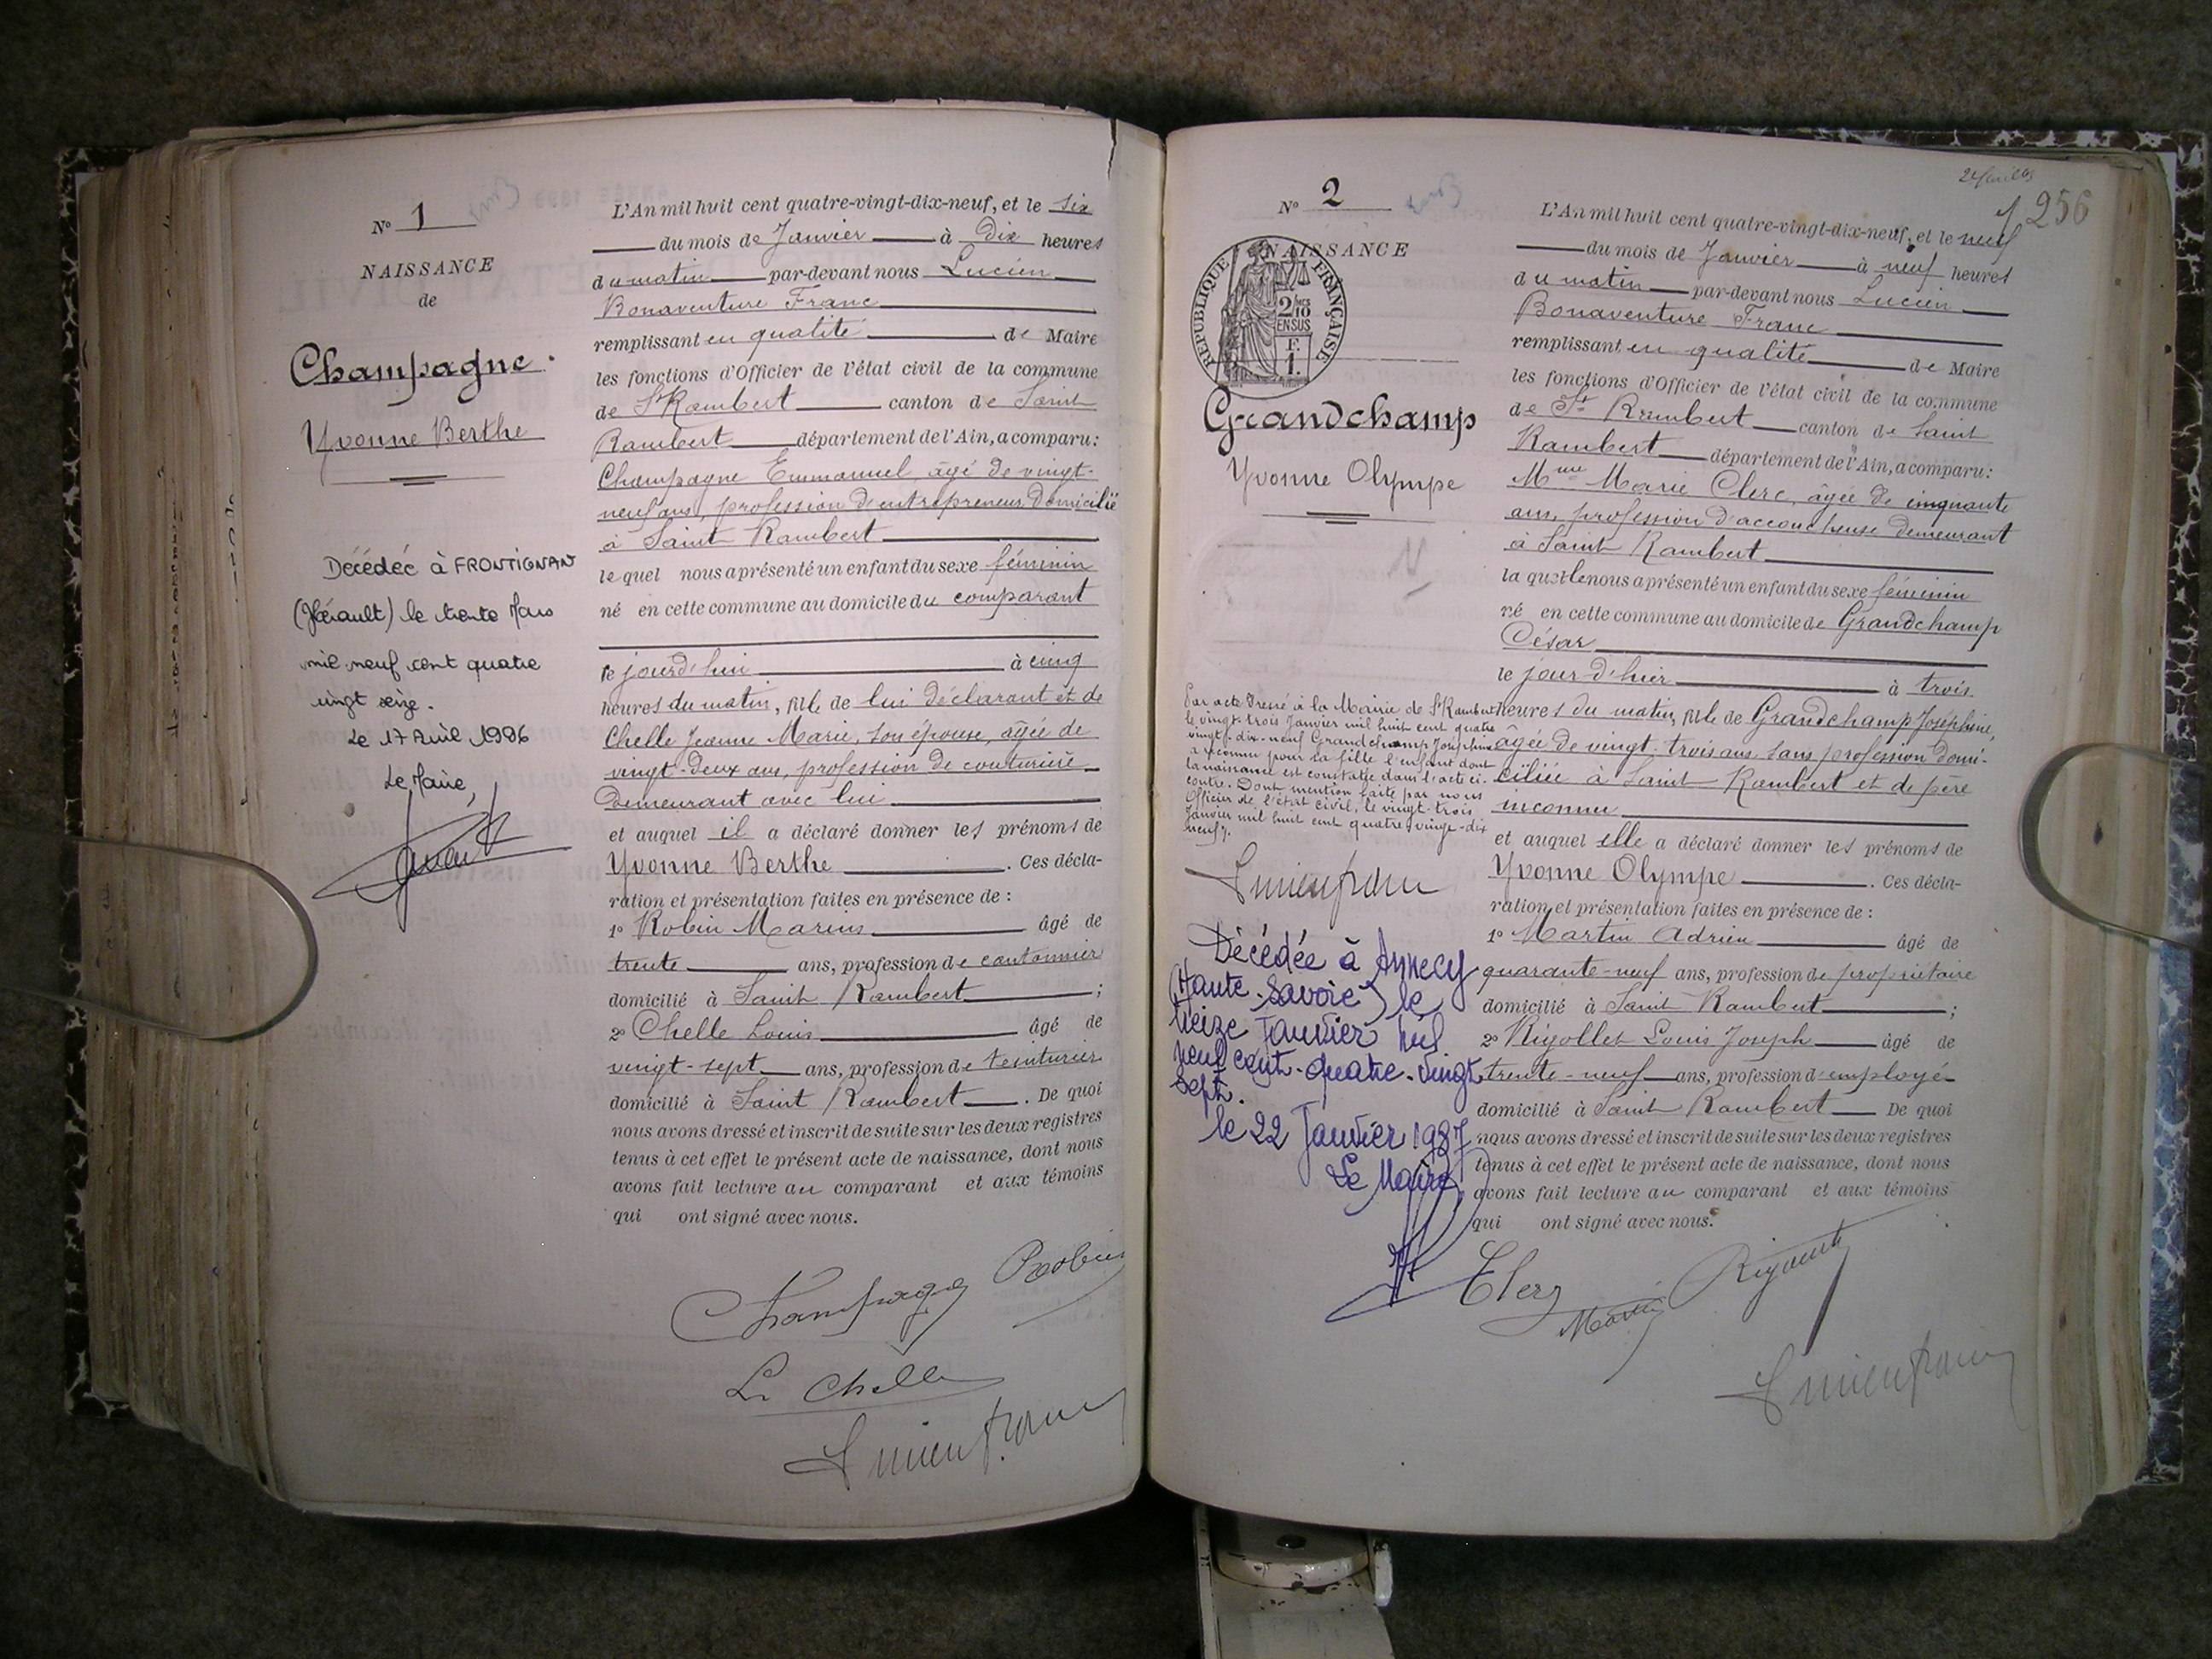 Nº 1
NAISSANCE
de
Champagne
Yvonne Berthe
Décédée à FRONTIGNAN
(Hérault) le trente Mars
mil neuf cent quatre
vingt seize.
Le 17 Avril 1996
Le Maire,
L'An mil huit cent quatre-vingt-dix-neuf, et le six
du mois de Janvier à dix heures
du matin par-devant nous Lucien
Bonaventure Franc
remplissant en qualité de Maire
les fonctions d'Officier de l'état civil de la commune
de St Rambert canton de Saint
Rambert département de l'Ain, a comparu:
Champagne Emmanuel, âgé de vingt-
neuf ans, profession d'entrepreneur domicilié
à Saint Rambert
lequel nous a présenté un enfant du sexe féminin
né en cette commune au domicile du comparant
le jourd'hui à cinq
heures du matin, fille de lui déclarant et de
Chelle Jeanne Marie, son épouse, âgée de
vingt-deux ans, profession de couturière
demeurant avec lui
et auquel il a déclaré donner les prénoms de
Yvonne Berthe. Ces décla-
ration et présentation faites en présence de :
1º Robin Marius âgé de
trente ans, profession de cantonnier
domicilié à Saint Rambert ;
2º Chelle Louis âgé de
vingt-sept ans, profession de teinturier
domicilié à Saint Rambert. De quoi
nous avons dressé et inscrit de suite sur les deux registres
tenus à cet effet le présent acte de naissance, dont nous
avons fait lecture au comparant et aux témoins
qui ont signé avec nous.
Champagne Robin
L. Chelle
Lucien franc
256
Nº 2
NAISSANCE
REPUBLIQUE FRANÇAISE
2/10
EN SUS
F.
1.
Grandchamp
Yvonne Olympe
Par acte dressé à la Mairie de St Rambert
le vingt-trois Janvier mil huit cent quatre
vingt-dix-neuf Grandchamp Joséphine
a reconnu pour sa fille l'enfant dont
la naissance est constatée dans l'acte ci-
contre. Dont mention faite par nous
Officier de l'état civil, le vingt-trois
Janvier mil huit cent quatre-vingt-dix
neuf.
Lucien franc
Décédée à Annecy
(Haute-Savoie) le
treize Janvier mil
neuf cent-quatre-vingt
sept.
le 22 Janvier 1987
Le Maire,
L'An mil huit cent quatre-vingt-dix-neuf, et le neuf
du mois de Janvier à neuf heures
du matin par-devant nous Lucien
Bonaventure Franc
remplissant en qualité de Maire
les fonctions d'Officier de l'état civil de la commune
de St Rambert canton de Saint
Rambert département de l'Ain, a comparu:
Mme Marie Clerc, âgée de cinquante
ans, profession d'accoucheuse demeurant
à Saint Rambert
laquelle nous a présenté un enfant du sexe féminin
né en cette commune au domicile de Grandchamp
César
le jour d'hier à trois
heures du matin, fille de Grandchamp Joséphine,
âgée de vingt-trois ans sans profession domi-
ciliée à Saint Rambert et de père
inconnu
et auquel elle a déclaré donner les prénoms de
Yvonne Olympe. Ces décla-
ration et présentation faites en présence de :
1º Martin Adrien âgé de
quarante-neuf ans, profession de propriétaire
domicilié à Saint Rambert ;
2º Rigollet Louis Joseph âgé de
trente-neuf ans, profession d'employé
domicilié à Saint Rambert De quoi
nous avons dressé et inscrit de suite sur les deux registres
tenus à cet effet le présent acte de naissance, dont nous
avons fait lecture au comparant et aux témoins
qui ont signé avec nous.
Clerc Martin
Lucien franc